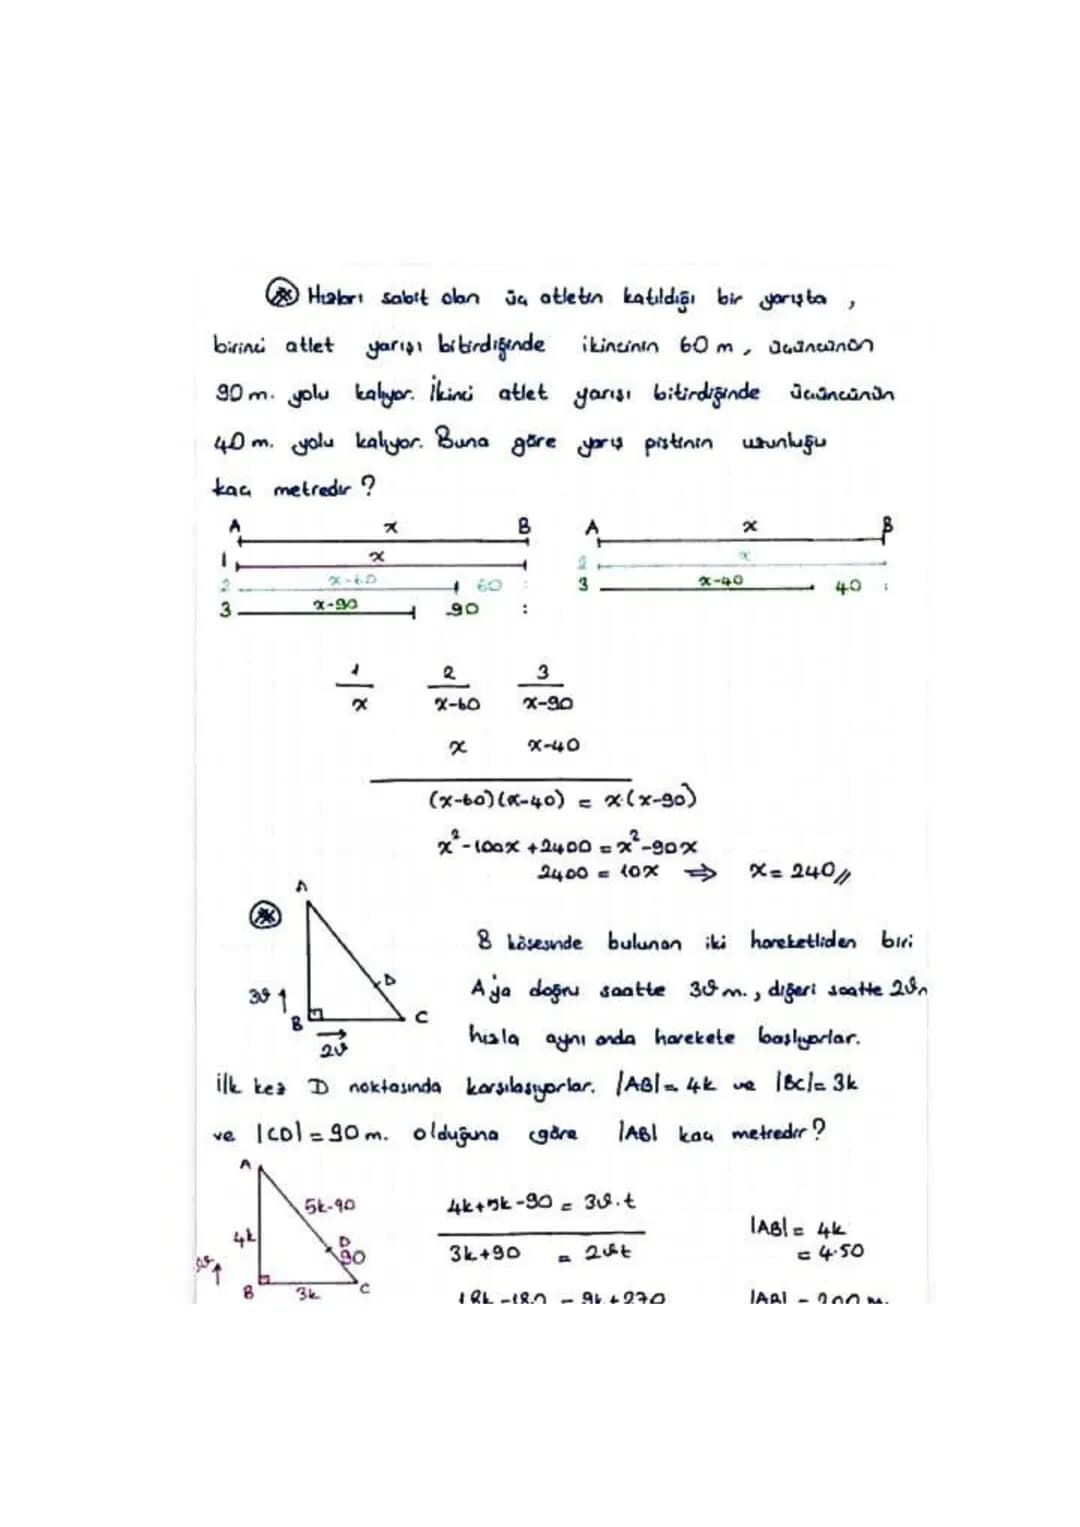 Hızları sabit olan üç atletin katıldığı bir yarışta ,
birinci atlet yarışı bitirdiğinde ikincinin 60 m, üçüncünün
90 m. yolu kalıyor. İkinci atlet yarışı bitirdiğinde üçüncünün
40 m. yolu kalıyor. Buna göre yarış pistinin uzunluğu
kaç metredir ?
A x B A x B
1 x 2 x
2 x-60 60 3 x-40 40
3 x-90 90
1 2 3
x x-60 x-90
x x-40
(x-60)(x-40) = x.(x-90)
x²-100x+2400 = x²-90x
2400 = 10x ⇒ x = 240//
A
B köşesinde bulunan iki hareketliden biri
D
3ϑ ↑ A'ya doğru saatte 3ϑ m., diğeri saatte 2ϑ
B C
hızla aynı anda harekete başlıyorlar.
2ϑ
İlk kez D noktasında karşılaşıyorlar. |AB| = 4k ve |BC| = 3k
ve |CD| = 90 m. olduğuna göre |AB| kaç metredir ?
A
5k-90 4k+5k-90 = 3ϑ.t
|AB| = 4k
4k D 3k+90 = 2ϑt
90 = 4.50
3ϑ ↑
B 3k C 18k-180 = 9k+270 |AB| = 200 m.